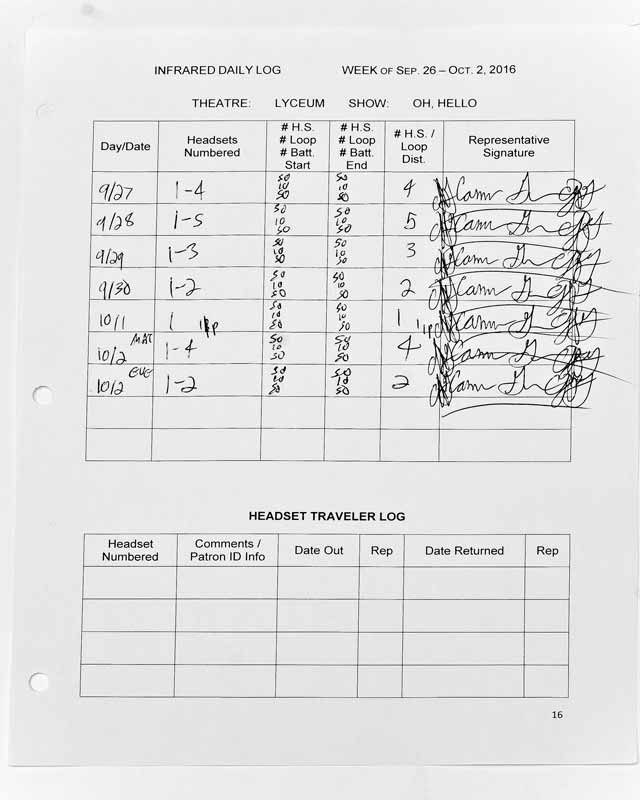 INFRARED DAILY LOG WEEK OF SEP. 26 – OCT. 2, 2016
THEATRE: LYCEUM SHOW: OH, HELLO
Day/Date Headsets Numbered # H.S. # Loop # Batt. Start # H.S. # Loop # Batt. End # H.S. / Loop Dist. Representative Signature
9/27 1-4 50 10 50 50 10 50 4
9/28 1-5 50 10 50 50 10 50 5
9/29 1-3 50 10 50 50 10 50 3
9/30 1-2 50 10 50 50 10 50 2
10/1 1 1lp 50 10 50 50 10 50 1 1lp
10/2 MAT 1-4 50 10 50 50 10 50 4
10/2 EVE 1-2 50 10 50 50 10 50 2
HEADSET TRAVELER LOG
Headset Numbered Comments / Patron ID Info Date Out Rep Date Returned Rep
16